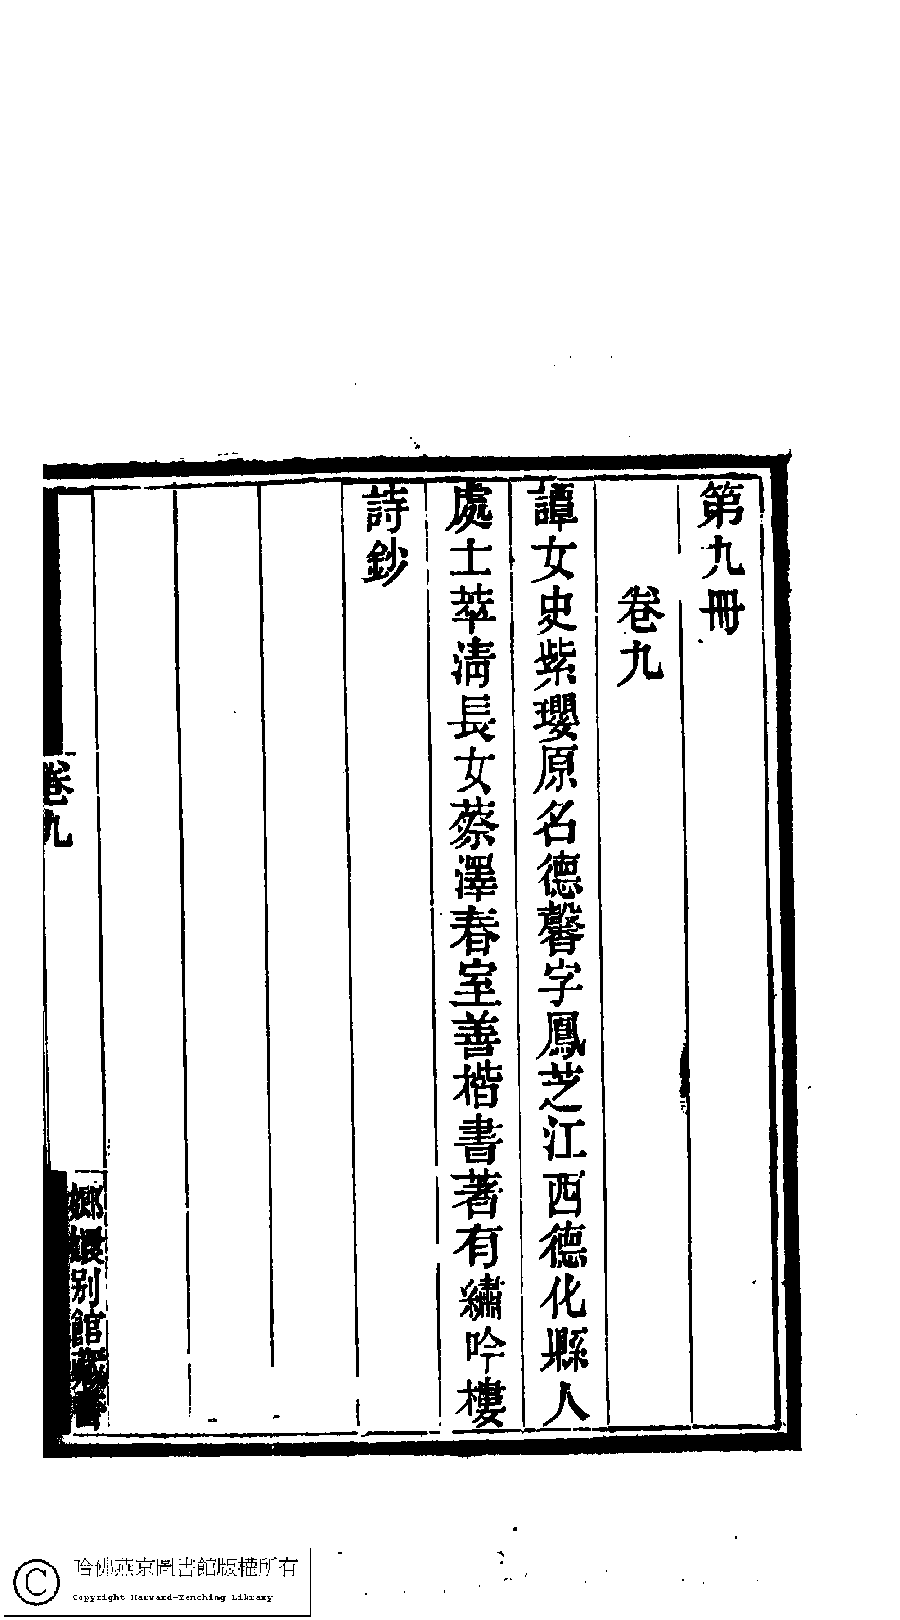 第九冊
卷九
譚女史紫瓔原名德馨字鳳芝江西德化縣人
處士萃清長女蔡澤春室善楷書著有繡吟樓
詩鈔
卷九
嫏嬛別館藏書
哈佛燕京圖書館版權所有
Copyright Harvard-Yenching Library